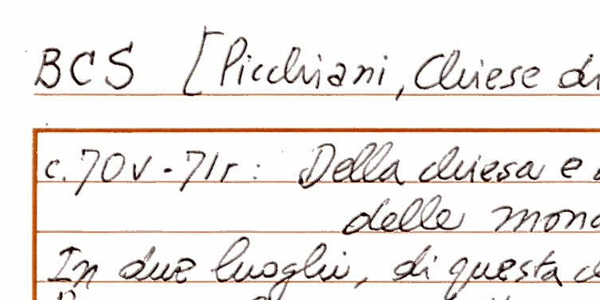 BCS [Picchiani, Chiese di
c. 70v - 71r: Della chiesa e
delle mona
In due luoghi, di questa